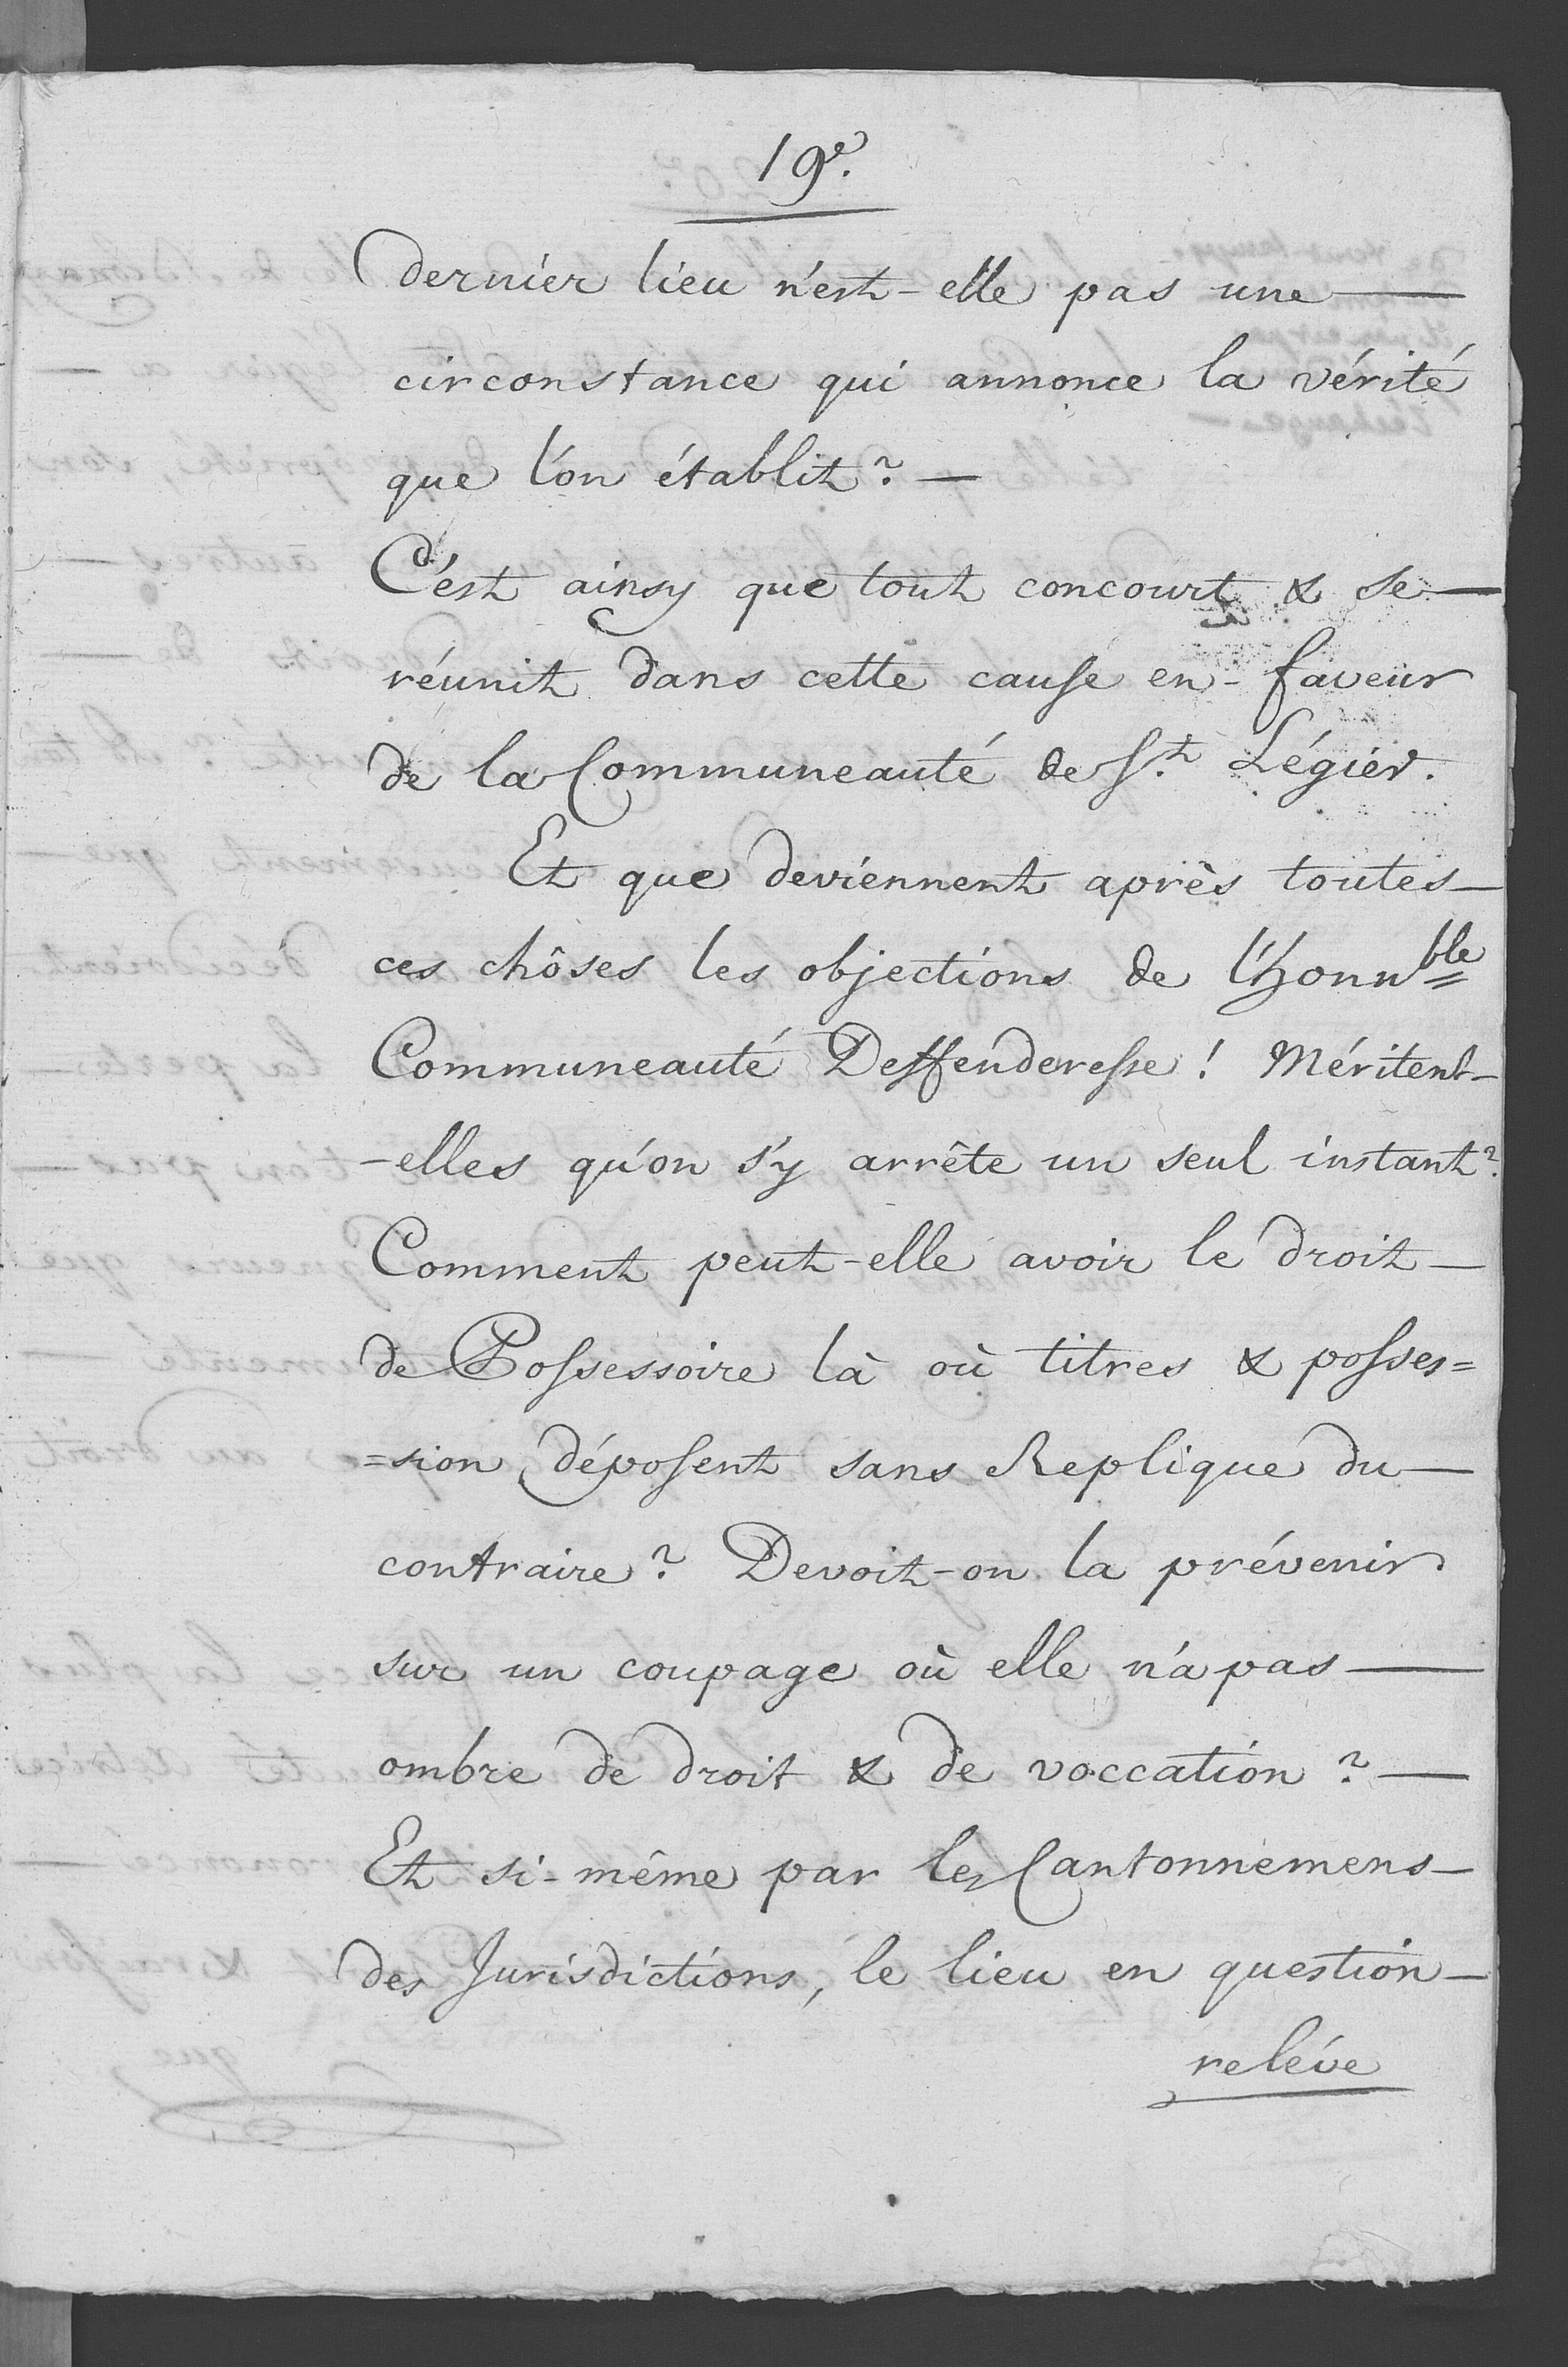 19e.
dernier lieu n'est-elle pas une —
circonstance qui annonce la vérité
que l'on établit ? —
C'est ainsy que tout concourt & se —
réunit dans cette cause en-faveur
de la Communeauté de St. Légier.
Et que deviennent après toutes —
ces chôses les objections de l'honnble
Communeauté Deffenderesse ! Méritent-
-elles qu'on s'y arrête un seul instant ?
Comment peut-elle avoir le droit —
de Possessoire là où titres & posses=
=sion déposent sans Replique du —
contraire ? Devoit-on la prévenir
sur un coupage où elle n'a pas —
ombre de droit & de voccation ? —
Et si-même par les Cantonnemens —
des Jurisdictions, le lieu en question —
reléve